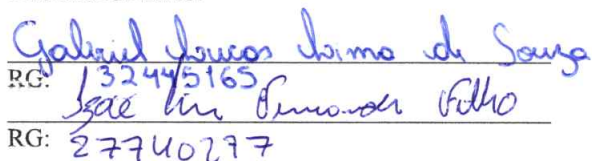 Gabriel Lucas Lima de Souza
RG: 32445165
José Fernandes Filho
RG: 27740277